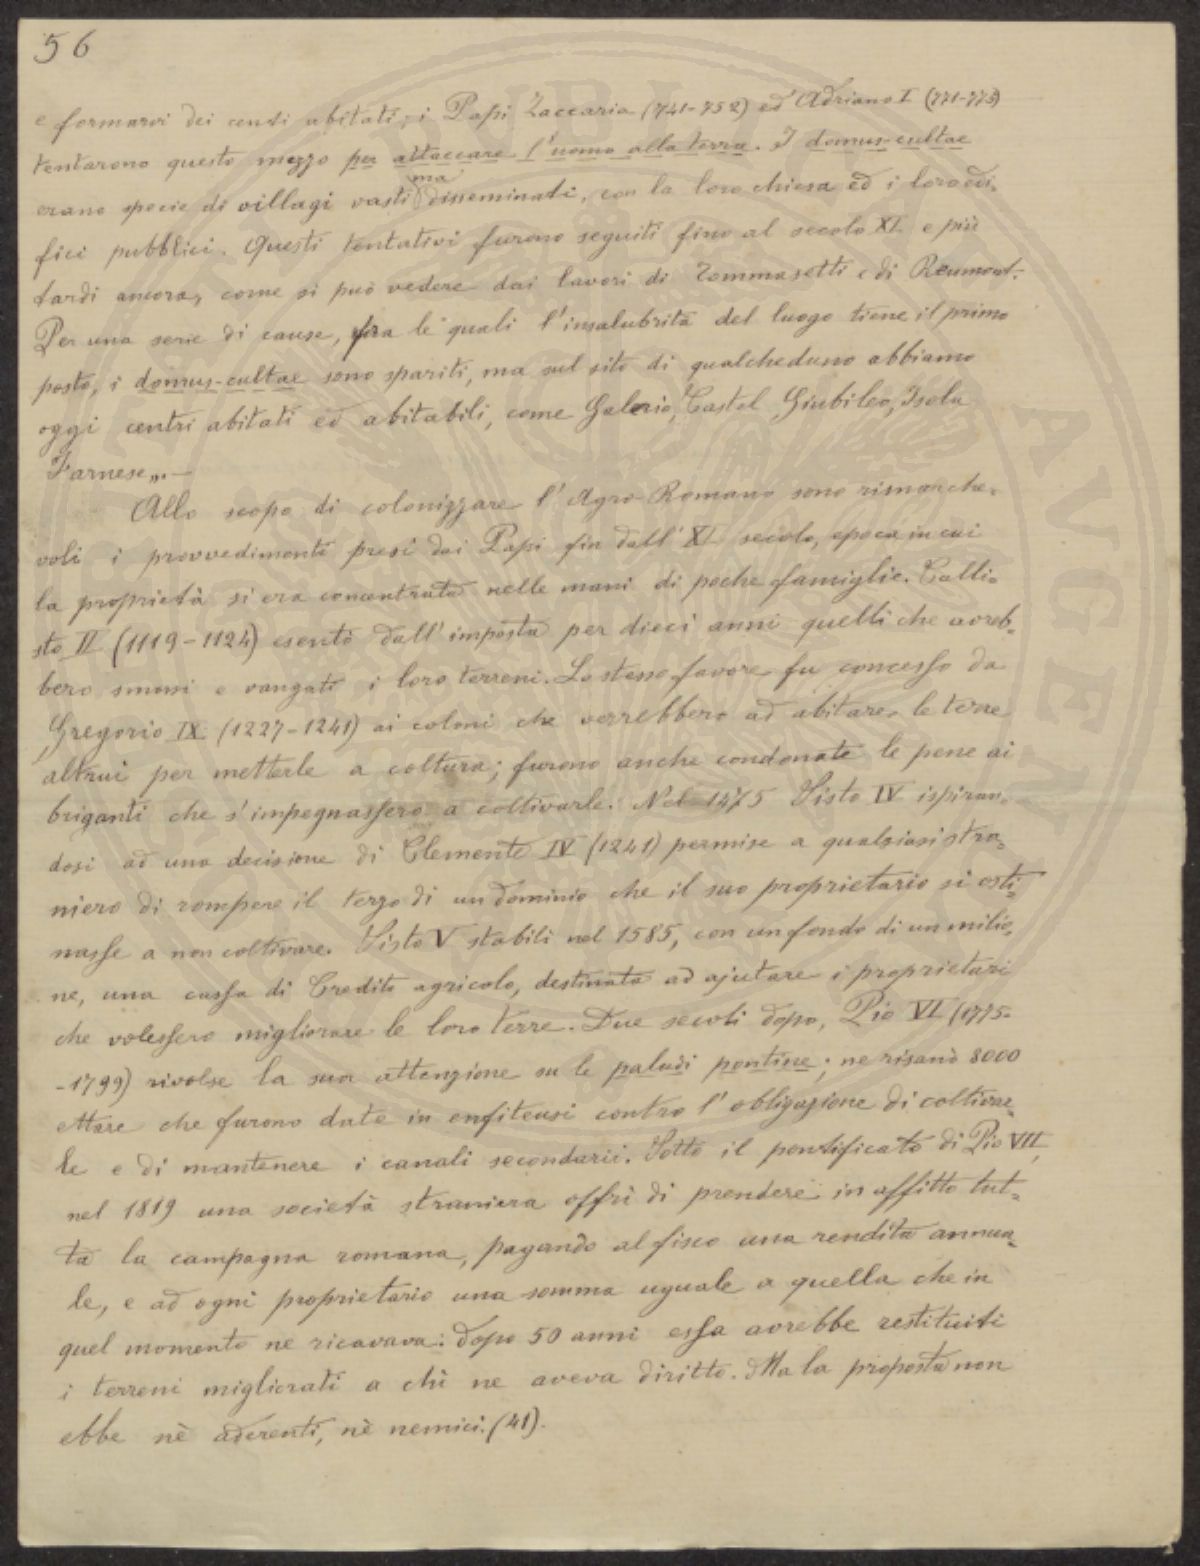 56
e formarvi dei centri abitati, i Papi Zaccaria (741-752) ed Adriano I (771-775)
tentarono questo mezzo per attaccare l'uomo alla terra. I domus-cultae
erano specie di villagi vasti ma disseminati, con la loro chiesa ed i loro edi-
fici pubblici. Questi tentativi furono seguiti fino al secolo XI e più
tardi ancora, come si può vedere dai lavori di Tommasetti e di Reumont.
Per una serie di cause, fra le quali l'insalubrità del luogo tiene il primo
posto, i domus-cultae sono spariti, ma sul sito di qualcheduno abbiamo
oggi centri abitati ed abitabili, come Galerio, Castel Giubileo, Isola
Farnese,,.—
Allo scopo di colonizzare l'Agro Romano sono rimarche-
voli i provvedimenti presi dai Papi fin dall' XI secolo, epoca in cui
la proprietà si era concentrata nelle mani di poche famiglie. Calli-
sto II (1119-1124) esentò dall'imposta per dieci anni quelli che avreb-
bero smossi e vangati i loro terreni. Lo stesso favore fu concesso da
Gregorio IX (1227-1241) ai coloni che verrebbero ad abitare le terre
altrui per metterle a coltura; furono anche condonate le pene ai
briganti che s'impegnassero a coltivarle. Nel 1475 Sisto IV ispiran-
dosi ad una decisione di Clemente IV (1241) permise a qualsiasi stra-
niero di rompere il terzo di un dominio che il suo proprietario si osti-
nasse a non coltivare. Sisto V stabilì nel 1585, con un fondo di un milio-
ne, una cassa di Credito agricolo, destinata ad ajutare i proprietari
che volessero migliorare le loro terre. Due secoli dopo, Pio VI (1775-
-1799) rivolse la sua attenzione su le paludi pontine; ne risanò 8000
ettare che furono date in enfiteusi contro l'obligazione di coltivar-
le e di mantenere i canali secondarii. Sotto il pontificato di Pio VII,
nel 1819 una società straniera offrì di prendere in affitto tut-
ta la campagna romana, pagando al fisco una rendita annua-
le, e ad ogni proprietario una somma uguale a quella che in
quel momento ne ricavava: dopo 50 anni essa avrebbe restituiti
i terreni migliorati a chi ne aveva diritto. Ma la proposta non
ebbe nè aderenti, nè nemici. (41).